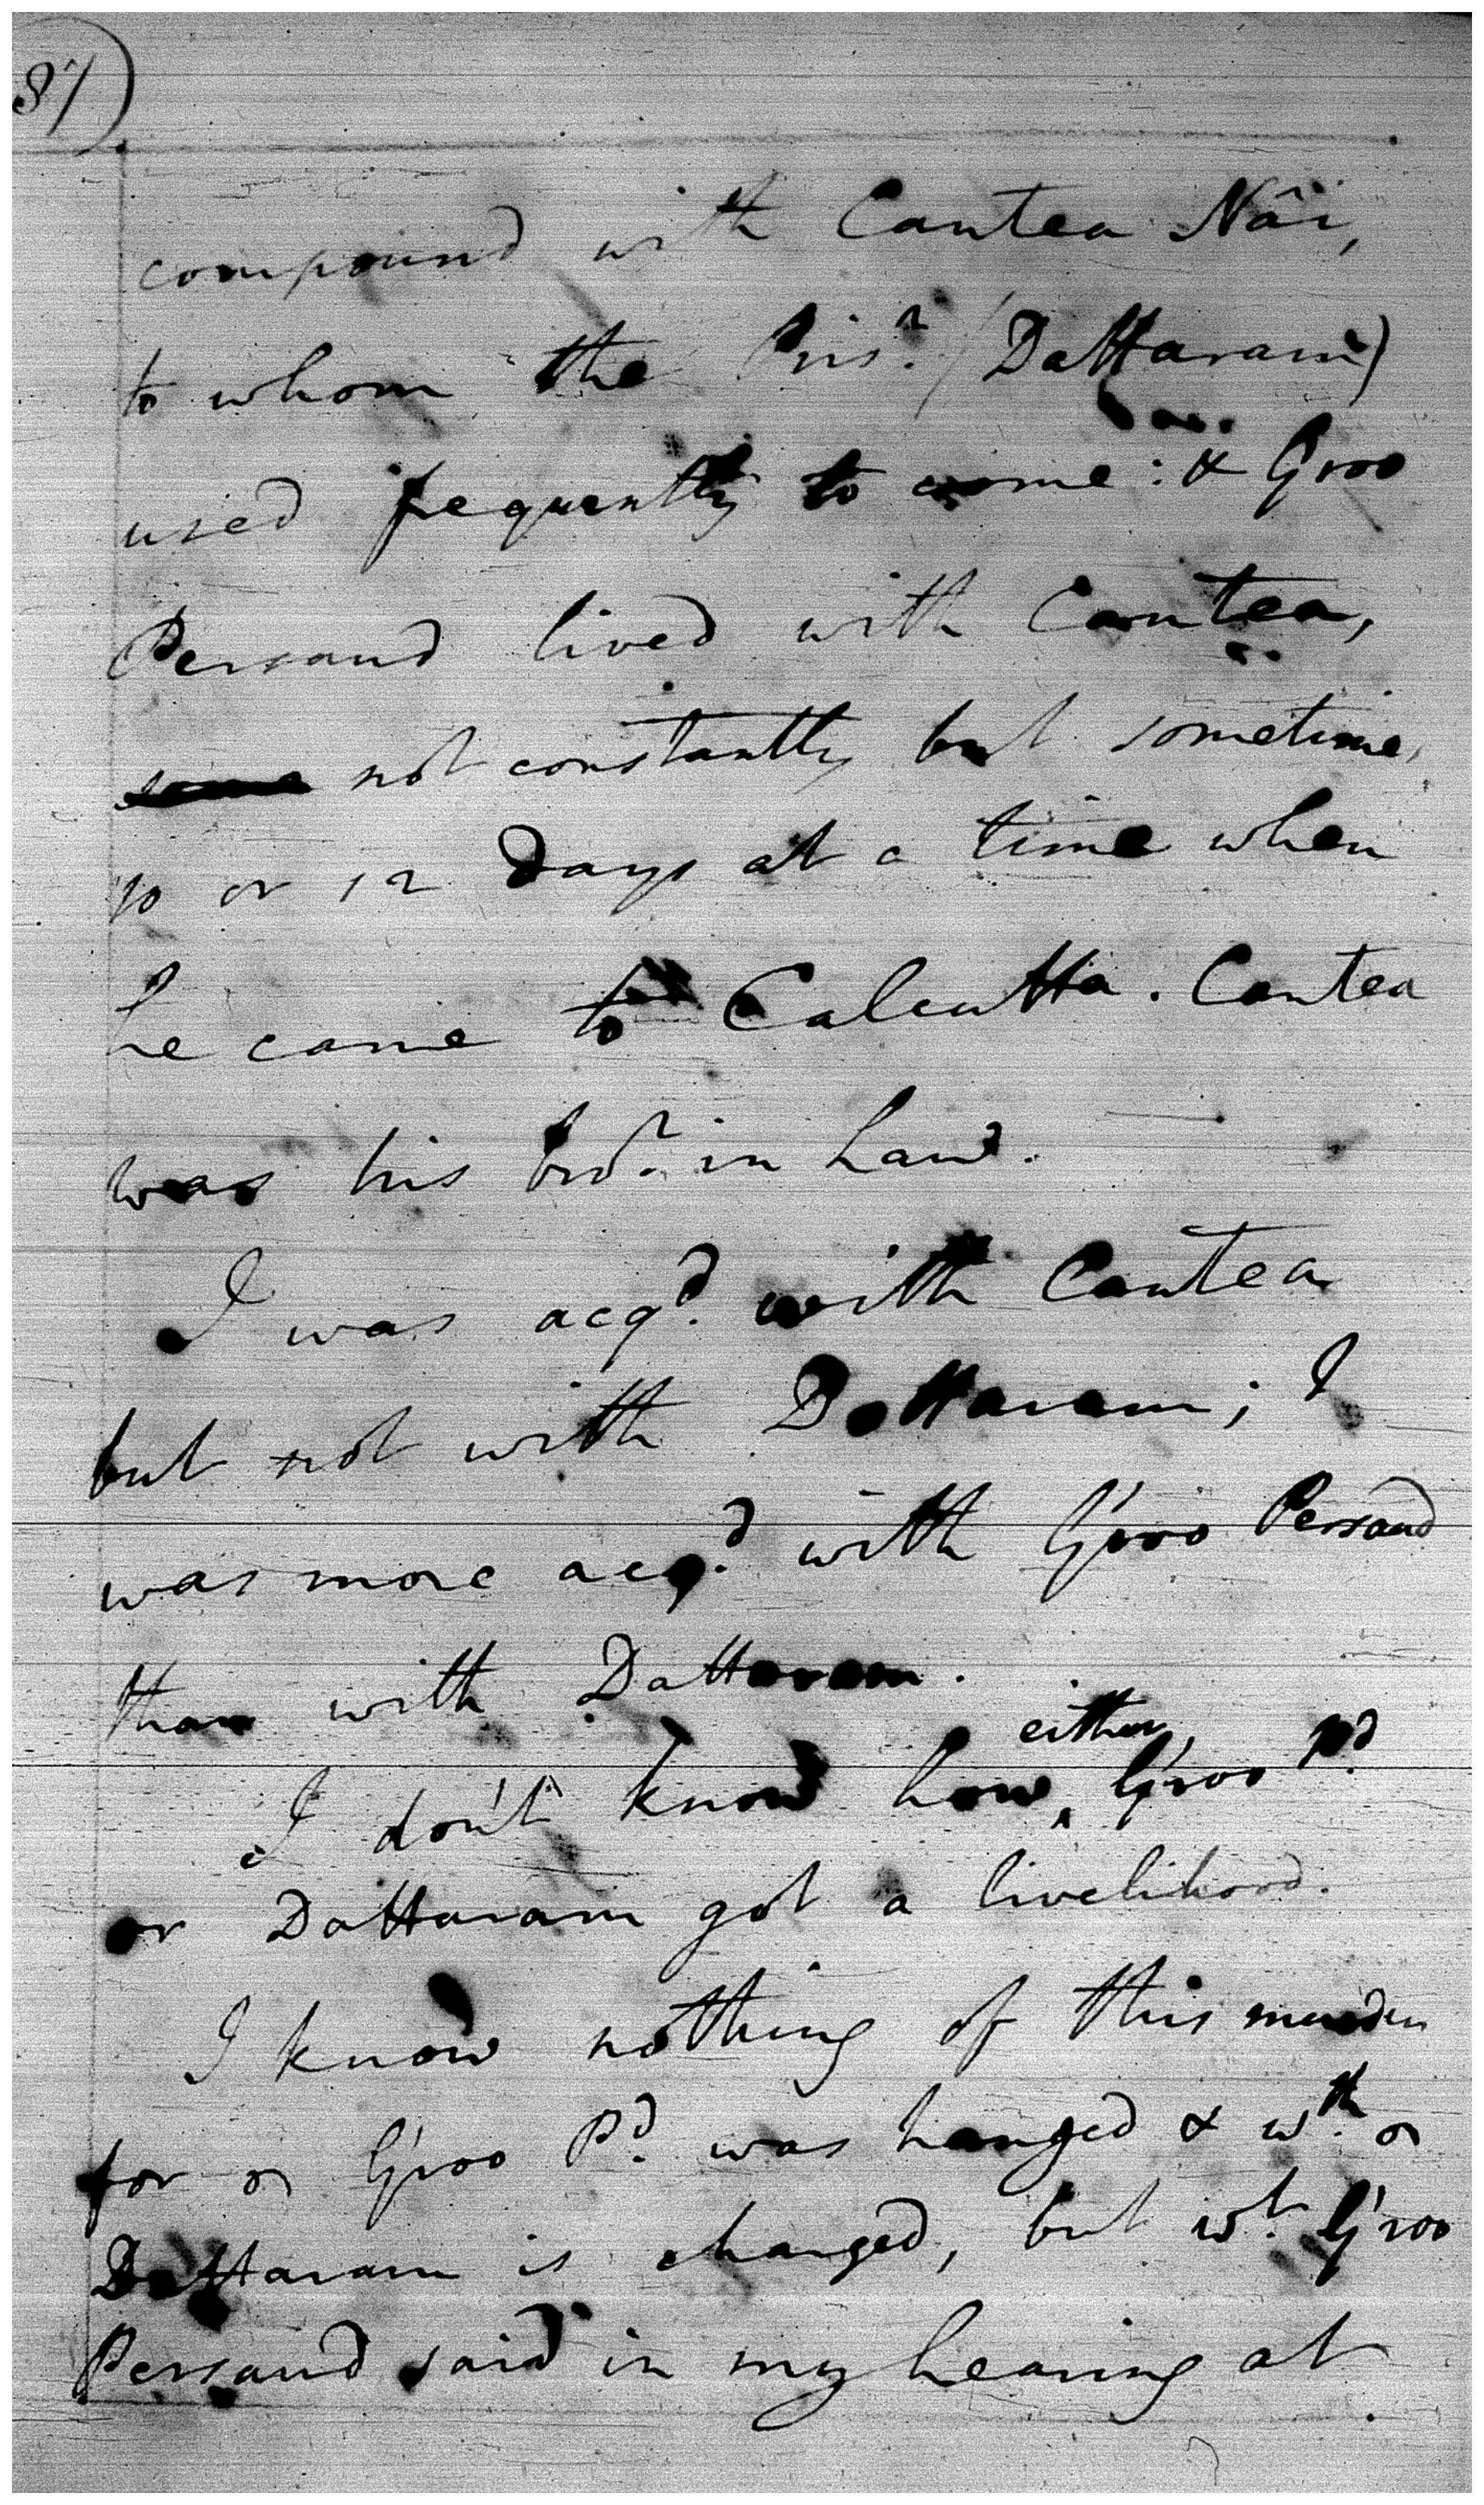 87)
compound with Cantea Nâi,
to whom the Pris.r (Dattaram)
used frequently to come: & Groo
Persaud lived with Cantea,
some not constantly but sometimes
10 or 12 Days at a time when
he came to Calcutta. Cantea
was his bro.r in Law.
I was acq.d with Cantea
but not with Dattaram; I
was more acq.d with Groo Persaud
than with Dattaram.
I don't know how either, Groo P.d
or Dattaram got a livelihood.
I know nothing of this murder
for Groo P.d was hanged & w.th
Dattaram is charged, but w.t Groo
Persaud said in my hearing at